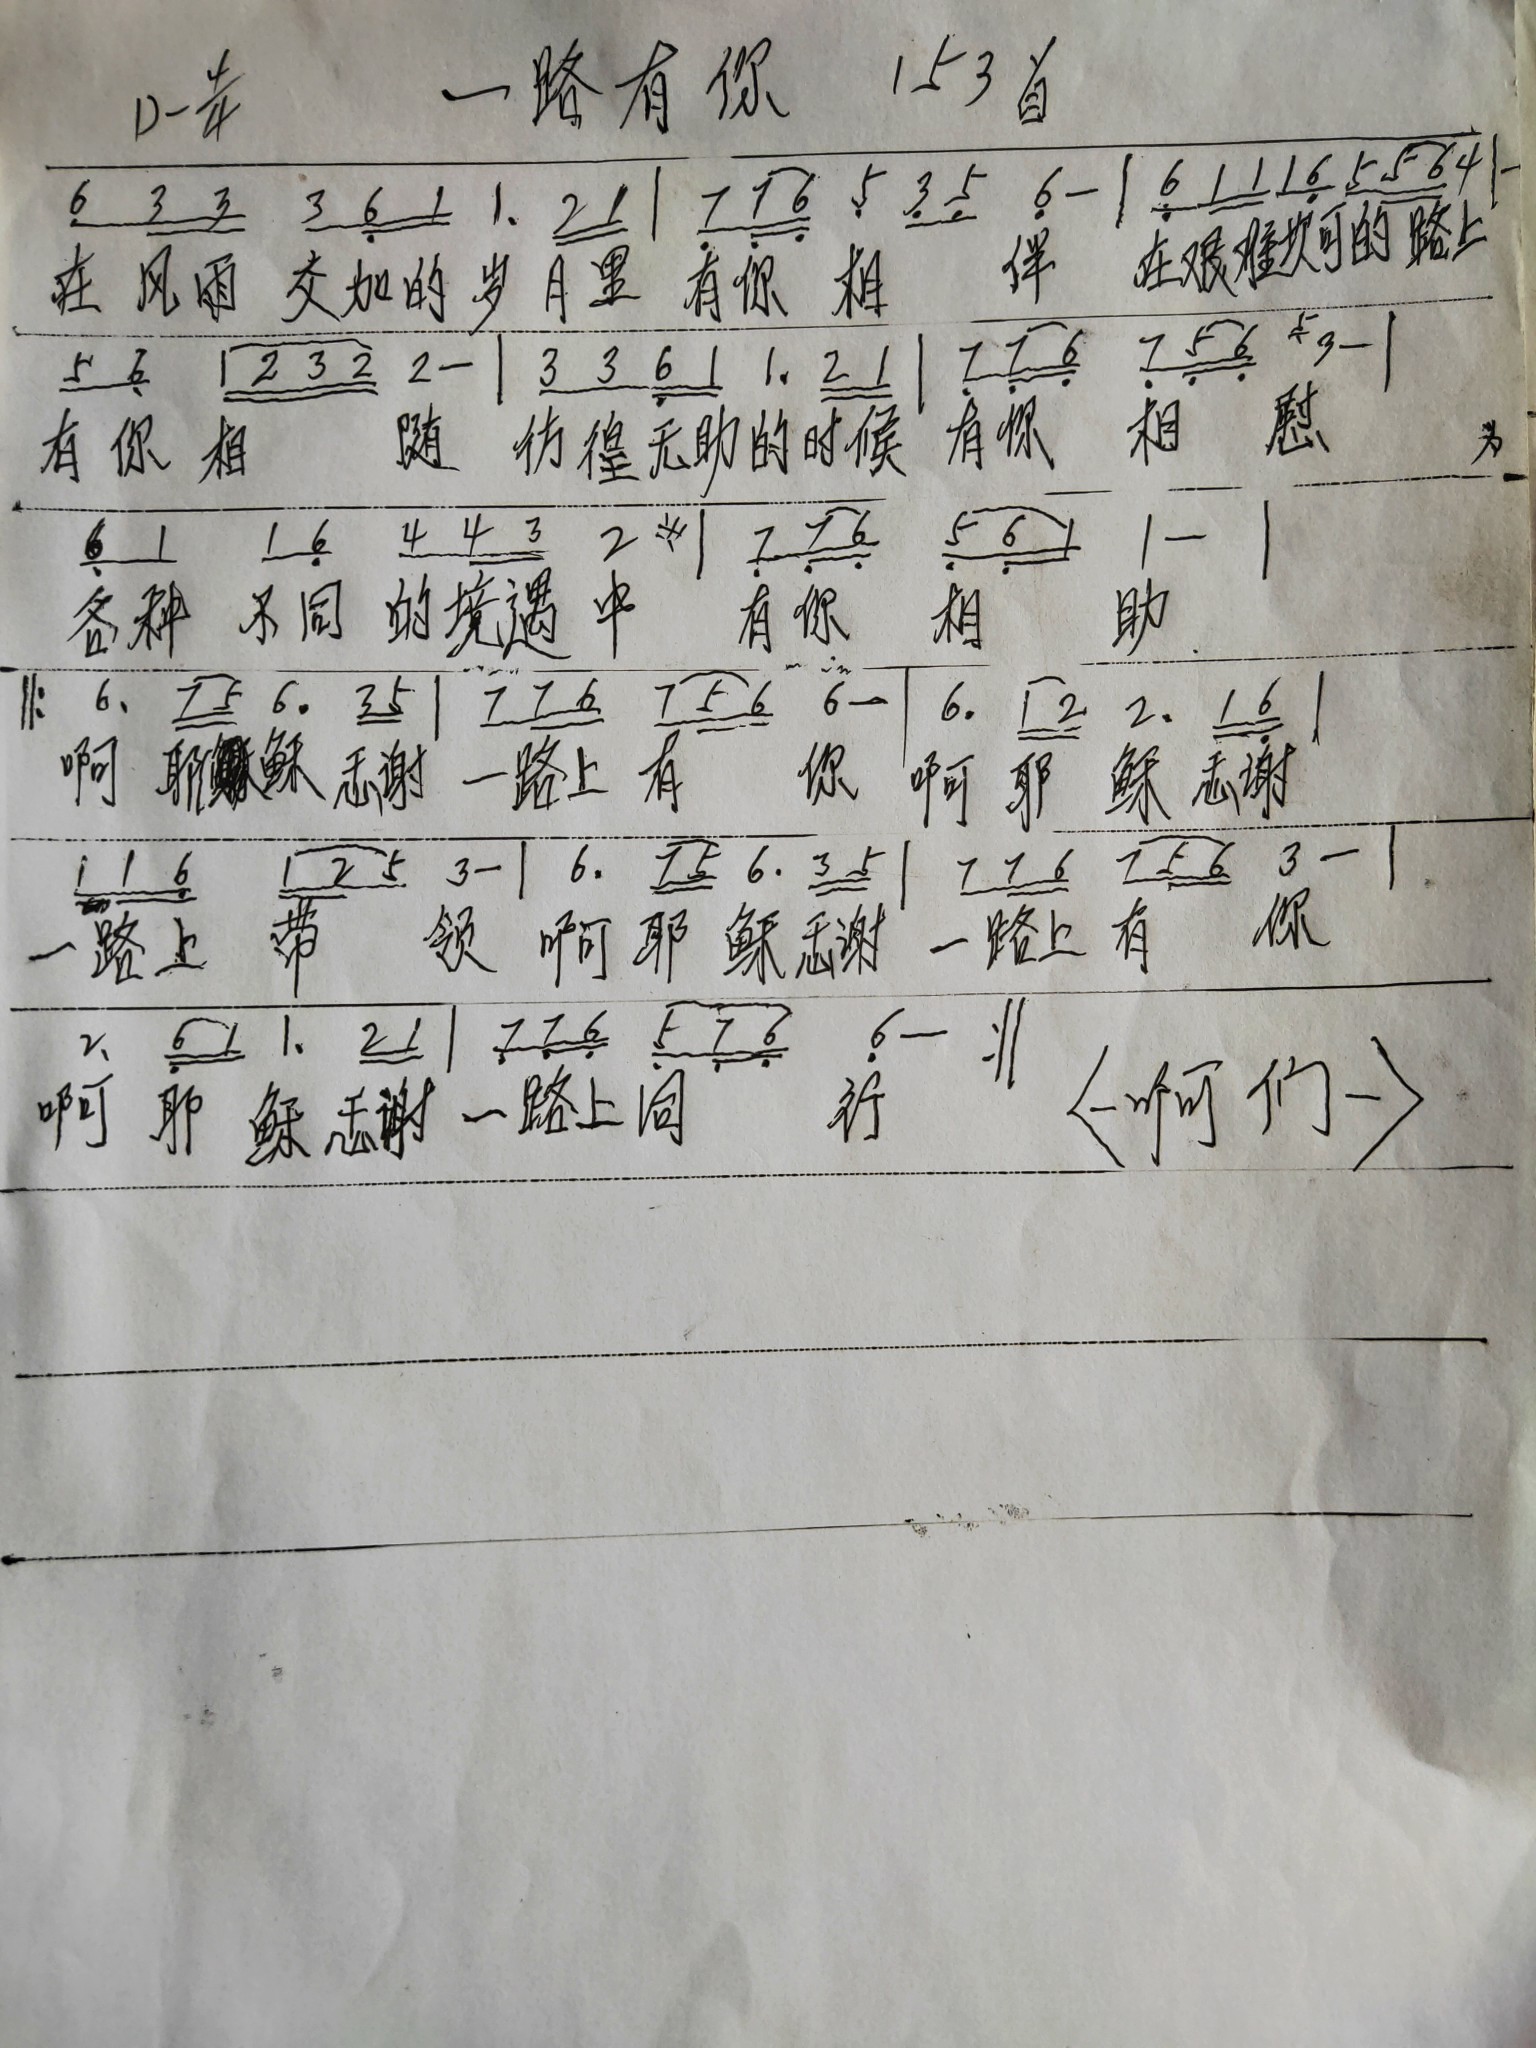 一路有你 153首
6 3 3 3 6 1 1. 2 1 | 7 7 6 5 3 5 6 — | 6 1 1 1 6 5 5 6 4 | —
在风雨交加的岁月里有你相伴在艰难坎坷的路上
5 6 1 2 3 2 2 — | 3 3 6 1 1. 2 1 | 7 7 6 7 5 6 5 3 — |
有你相随彷徨无助的时候有你相慰
6 1 1 6 4 4 3 2 | 7 7 6 5 6 1 1 — |
各种不同的境遇中有你相助
‖: 6. 7 5 6. 3 5 | 7 7 6 7 5 6 6 — | 6. 1 2 2. 1 6 |
啊耶稣感谢一路上有你啊耶稣感谢
1 1 6 1 2 5 3 — | 6. 7 5 6. 3 5 | 7 7 6 7 5 6 3 — |
一路上带领啊耶稣感谢一路上有你
2. 6 1 1. 2 1 | 7 7 6 5 7 6 6 — :‖
啊耶稣感谢一路上同行 〈-啊们-〉